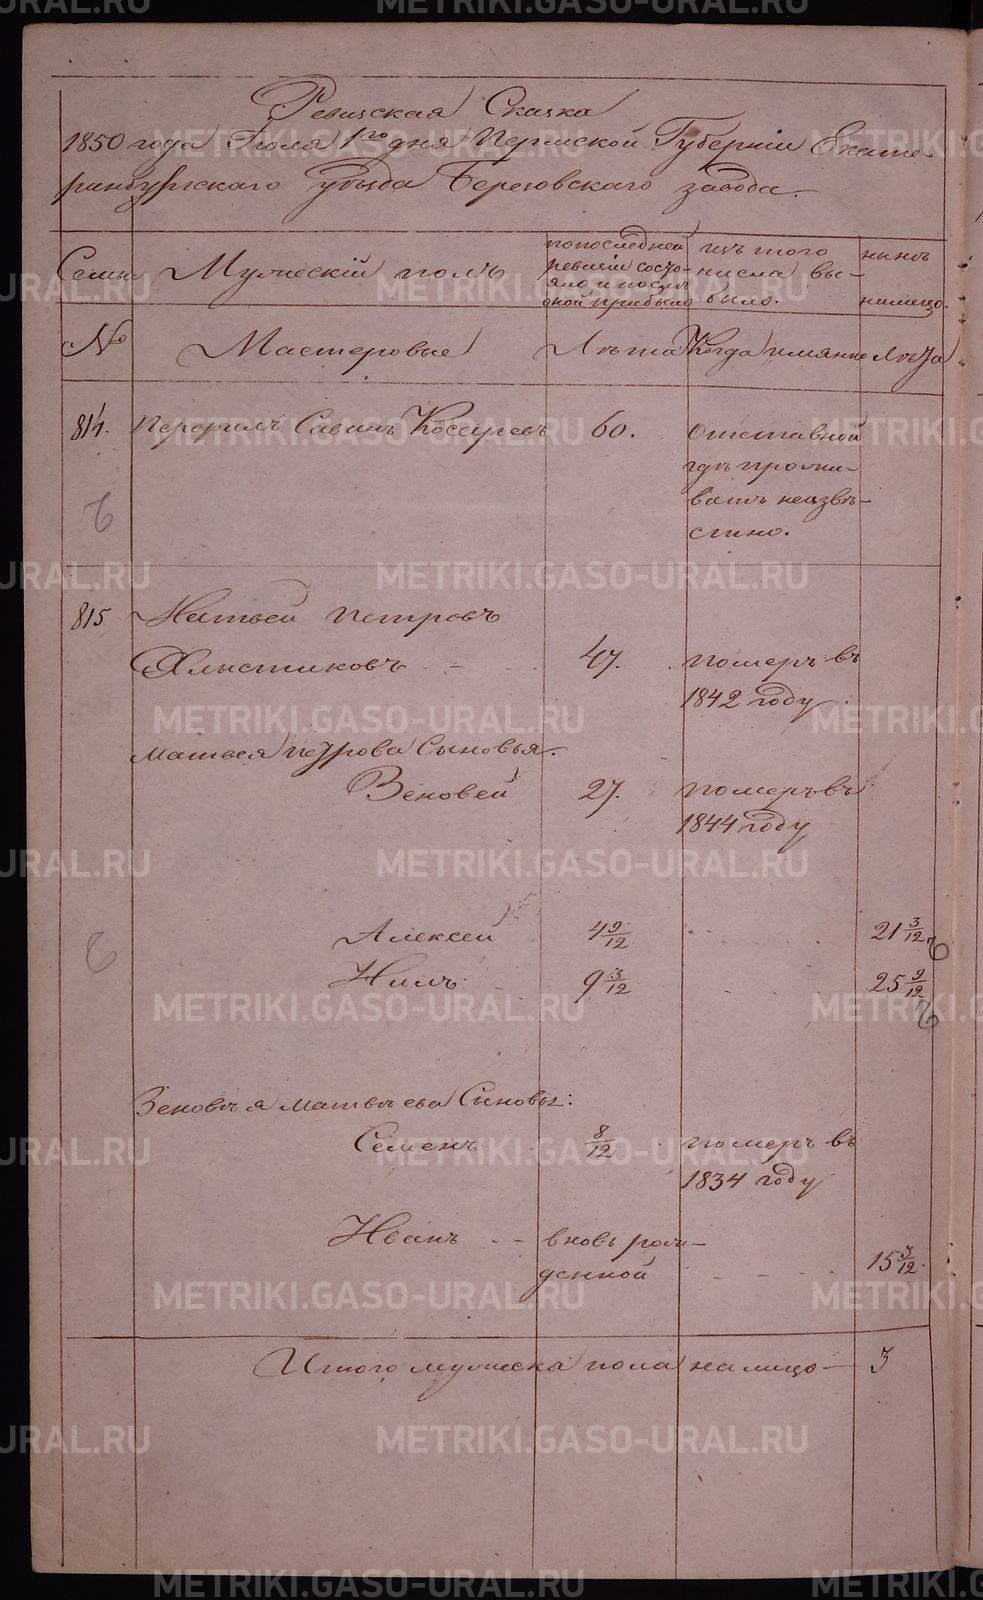 Ревизская Сказка
1850 года Июля 1го дня Пермской Губерніи Екате-
ринбургскаго уѣзда Березовскаго завода.
Семьи
Мужескій полъ
попоследней
ревизіи состо-
яло и послѣ
оной прибыло
изъ того
числа вы-
было.
нынѣ
налицо.
№
Мастеровые
Лѣта
Когда имянно
Лѣта
814.
Перфилъ Савинъ Косаревъ
60.
отставной
гдѣ прожи-
ваетъ неизвѣ-
стно.
815
Матвей Петровъ
Хлыстиковъ
47.
померъ въ
1842 году
Матвея Петрова Сыновья.
Зеновей
27.
померъ въ
1844 году
Алексей
4 9/12
21 3/12
Нилъ
9 3/12
25 9/12
Зеновѣя Матвѣева Сыновья:
Семенъ
8/12
померъ въ
1834 году
Иванъ
вновь рож-
денной
15 3/12
Итого мужеска пола налицо
3
METRIKI.GASO-URAL.RU